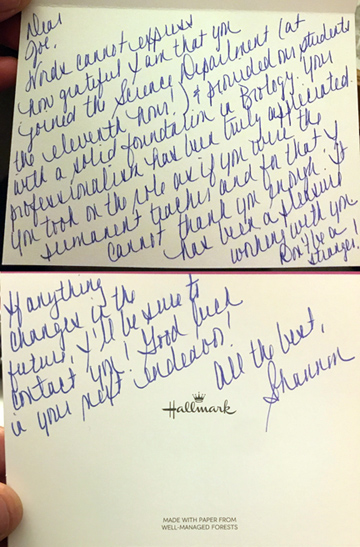 Dear
Joe,
Words cannot express
how grateful I am that you
joined the Science Department (at
the eleventh hour!) & provided our students
with a solid foundation in Biology. Your
professionalism has been truly appreciated.
You took on the role as if you were the
permanent teacher and for that I
cannot thank you enough. It
has been a pleasure
working with you
Don't be a
stranger!
If anything
changes in the
future, I'll be sure to
contact you! Good luck
in your next endeavor!
All the best,
Shannon
Hallmark
MADE WITH PAPER FROM
WELL-MANAGED FORESTS